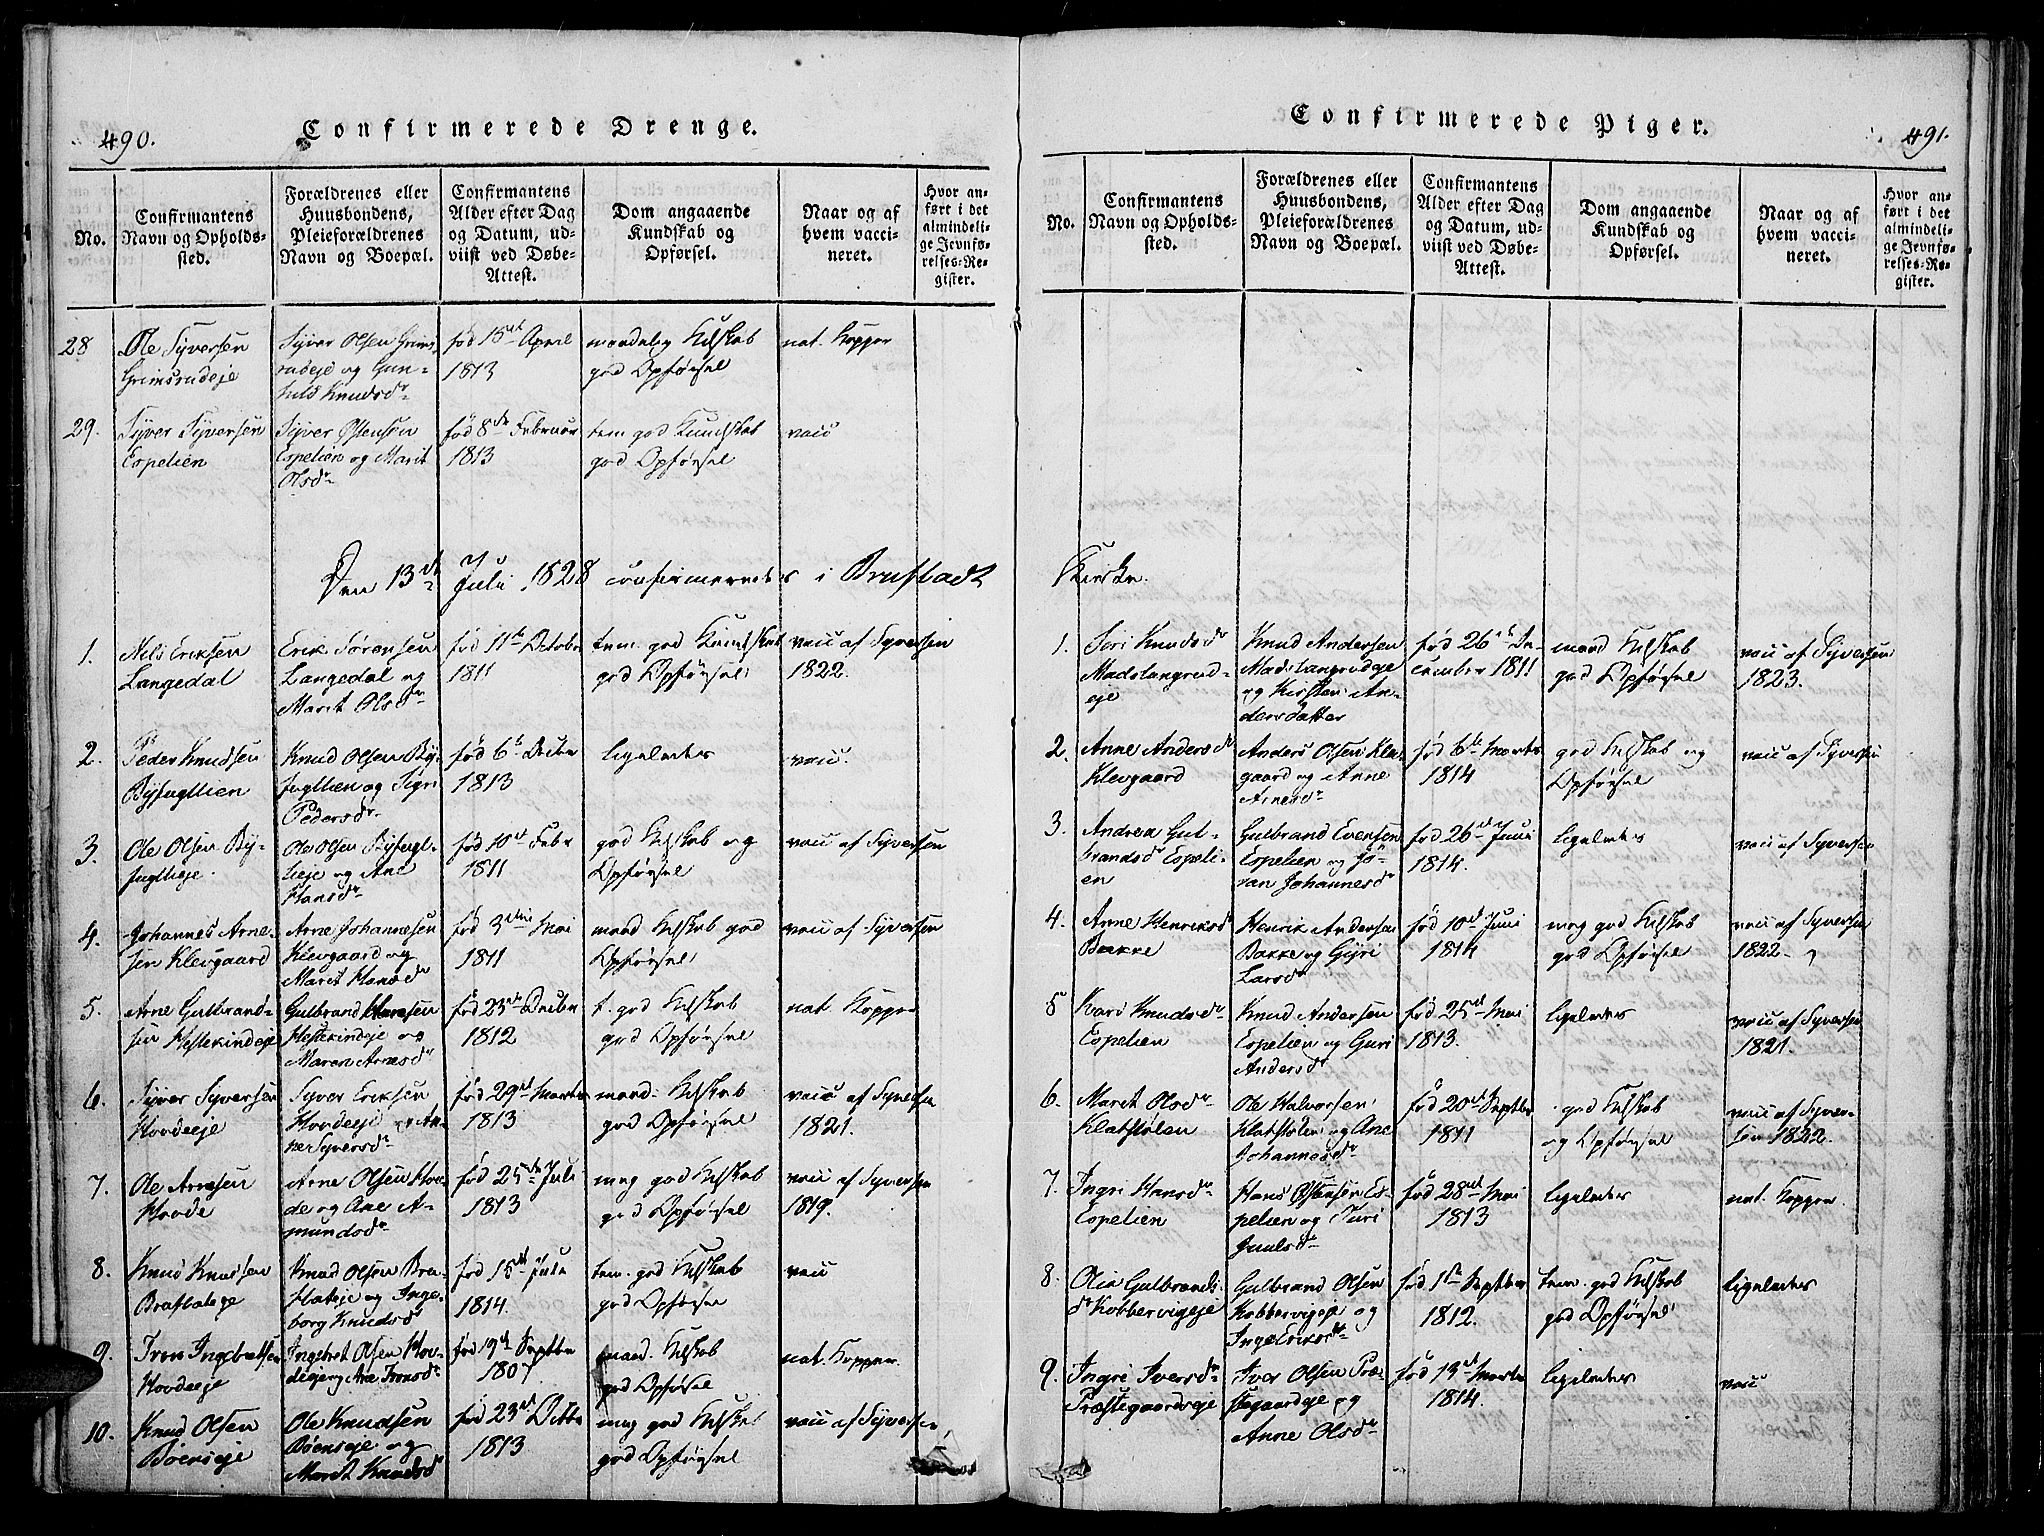 490.
Confirmerede Drenge.
No.
Confirmantens
Navn og Opholds-
sted.
Forældrenes eller
Huusbondens,
Pleieforældrenes
Navn og Boepæl.
Confirmantens
Alder efter Dag
og Datum, ud-
viist ved Døbe-
Attest.
Dom angaaende
Kundskab og
Opførsel.
Naar og af
hvem vacci-
neret.
Hvor an-
ført i det
almindeli-
ge Jevnfø-
relses-Re-
gister.
28
Ole Syversen
Grimsrudeje
Syver Olsen Grims-
rudeje og Gun-
hild Knudsdr
fød 15de April
1813
maadelig Kdskab
god Opførsel
nat. Kopper
29.
Syver Syversen
Espelien
Syver Østensen
Espelien og Marit
Olsdr
fød 8de Februar
1813
tem. god Kundskab
god Opførsel
vacc
Den 13de Juli 1828 confirmeredes i Brufladt
1.
Nils Eriksen
Langedal
Erik Sørensen
Langedal og
Marit Olsdr
fød 11te Octobr
1811
tem. god Kundskab
god Opførsel
vacc af Syversen
1822.
2.
Peder Knudsen
Byfugllien
Knud Olsen By-
fugllien og Sigri
Pedersdr
fød 6te Decbr
1813
ligeledes
vacc.
3.
Ole Olsen By-
fugllieje.
Ole Olsen Byfugl-
lieje og Ane
Hansdr
fød 10de Febr
1811
god Kdskab og
Opførsel
vacc af Syversen
4.
Johannes Arne-
sen Klevgaard
Arne Johannesen
Klevgaard og
Marit Hansdr
fød 3die Mai
1811
maad Kdskab god
Opførsel
vacc af Syversen
5.
Arne Gulbrand-
sen Hestekindeje
Gulbrand Hansen
Hestekindeje og
Maren Arnesdr
fød 23de Decbr
1812
t. god Kdskab
god Opførsel
nat. Kopper
6.
Syver Syversen
Hovdeeje
Syver Eriksen
Hovdeeje og An-
ne Syversdr
fød 29de Marts
1813
maad. Kdskab
god Opførsel
vacc af Syversen
1821.
7.
Ole Arnesen
Hovde
Arne Olsen Hov-
de og Ane A-
mundsdr
fød 25de Juli
1813
meg god Kdskab
god Opførsel
vacc af Syversen
1819.
8.
Knud Knudsen
Knud Olsen Bra-
flateje og Inge-
borg Knudsdr
fød 15de Juli
1814.
tem. god Kdskab
god Opførsel
vacc
9.
Iver Ingebretsen
Hovdeeje
Ingebret Olsen Hov-
deeje og Ane Iversdr
fød 19de Septbr
1807
maad. Kdskab
god Opførsel
nat. Kopper
10.
Knud Olsen
Bøenseje
Ole Knudsen
Bøenseje og
Marit Knudsdr
fød 23de Octbr
1813
meg god Kdskab
god Opførsel
vacc af Syversen
Confirmerede Piger.
491.
No.
Confirmantens
Navn og Opholds-
sted.
Forældrenes eller
Huusbondens,
Pleieforældrenes
Navn og Boepæl.
Confirmantens
Alder efter Dag
og Datum, ud-
viist ved Døbe-
Attest.
Dom angaaende
Kundskab og
Opførsel.
Naar og af
hvem vacci-
neret.
Hvor an-
ført i det
almindeli-
ge Jevnfø-
relses-Re-
gister.
Kirke.
1.
Siri Knudsdr
Madslangrud-
eje
Knud Andersen
Madslangrudeje
og Kirsten An-
dersdatter
fød 26de De-
cember 1811
maad Kdskab
god Opførsel
vacc af Syversen
1823.
2.
Anne Andersdr
Klevgaard
Anders Olsen Klev-
gaard og Anne
Arnesdr
fød 6te Marts
1814
god Kdskab og
Opførsel
vacc af Syversen
3.
Andrea Gul-
brandsdr Espeli-
en
Gulbrand Evensen
Espelien og Jø-
ran Johannesdr
fød 26de Juni
1814.
ligeledes
vacc af Syversen
4.
Anne Henriksdr
Bakke
Henrik Andersen
Bakke og Gyri
Larsdr
fød 10de Juni
1814
meg god Kdskab
god Opførsel
vacc af Syversen
1822.
5
Kari Knudsdr
Espelien
Knud Andersen
Espelien og Guri
Andersdr
fød 25de Mai
1813.
ligeledes
vacc af Syversen
1821.
6.
Marit Olsdr
Klatstølen
Ole Halvorsen
Klatstølen og Ane
Johannesdr
fød 20de Septbr
1811
god Kdskab
og Opførsel
vacc af Syver-
sen 1822.
7.
Ingri Hansdr
Espelien
Hans Østensen Es-
pelien og Turi
Juulsdr
fød 28de Mai
1813
ligeledes
nat. Kopper.
8.
Olia Gulbrands-
dr Kobbervigeje
Gulbrand Olsen
Kobbervigeje og
Inge Eriksdr
fød 1ste Septbr
1812.
tem. god Kdskab
god Opførsel
ligeledes
9.
Ingri Iversdr
Præstegaardseje
Iver Olsen Præ-
stegaardeje og
Anne Olsdr
fød 13de Marts
1814.
ligeledes
vacc